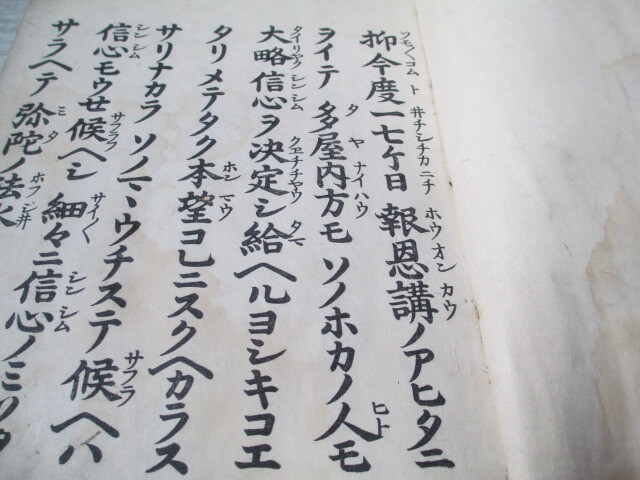 抑今度一七ケ日報恩講ノアヒタニ
ヲイテ多屋内方モソノホカノ人モ
大略信心ヲ決定シ給ヘルヨシキコエ
タリメテタク本望コレニスクヘカラス
サリナカラソノママウチステテ候ヘハ
信心モウせ候ヘシ細々ニ信心ノミソ
サラヘテ弥陀ノ法水